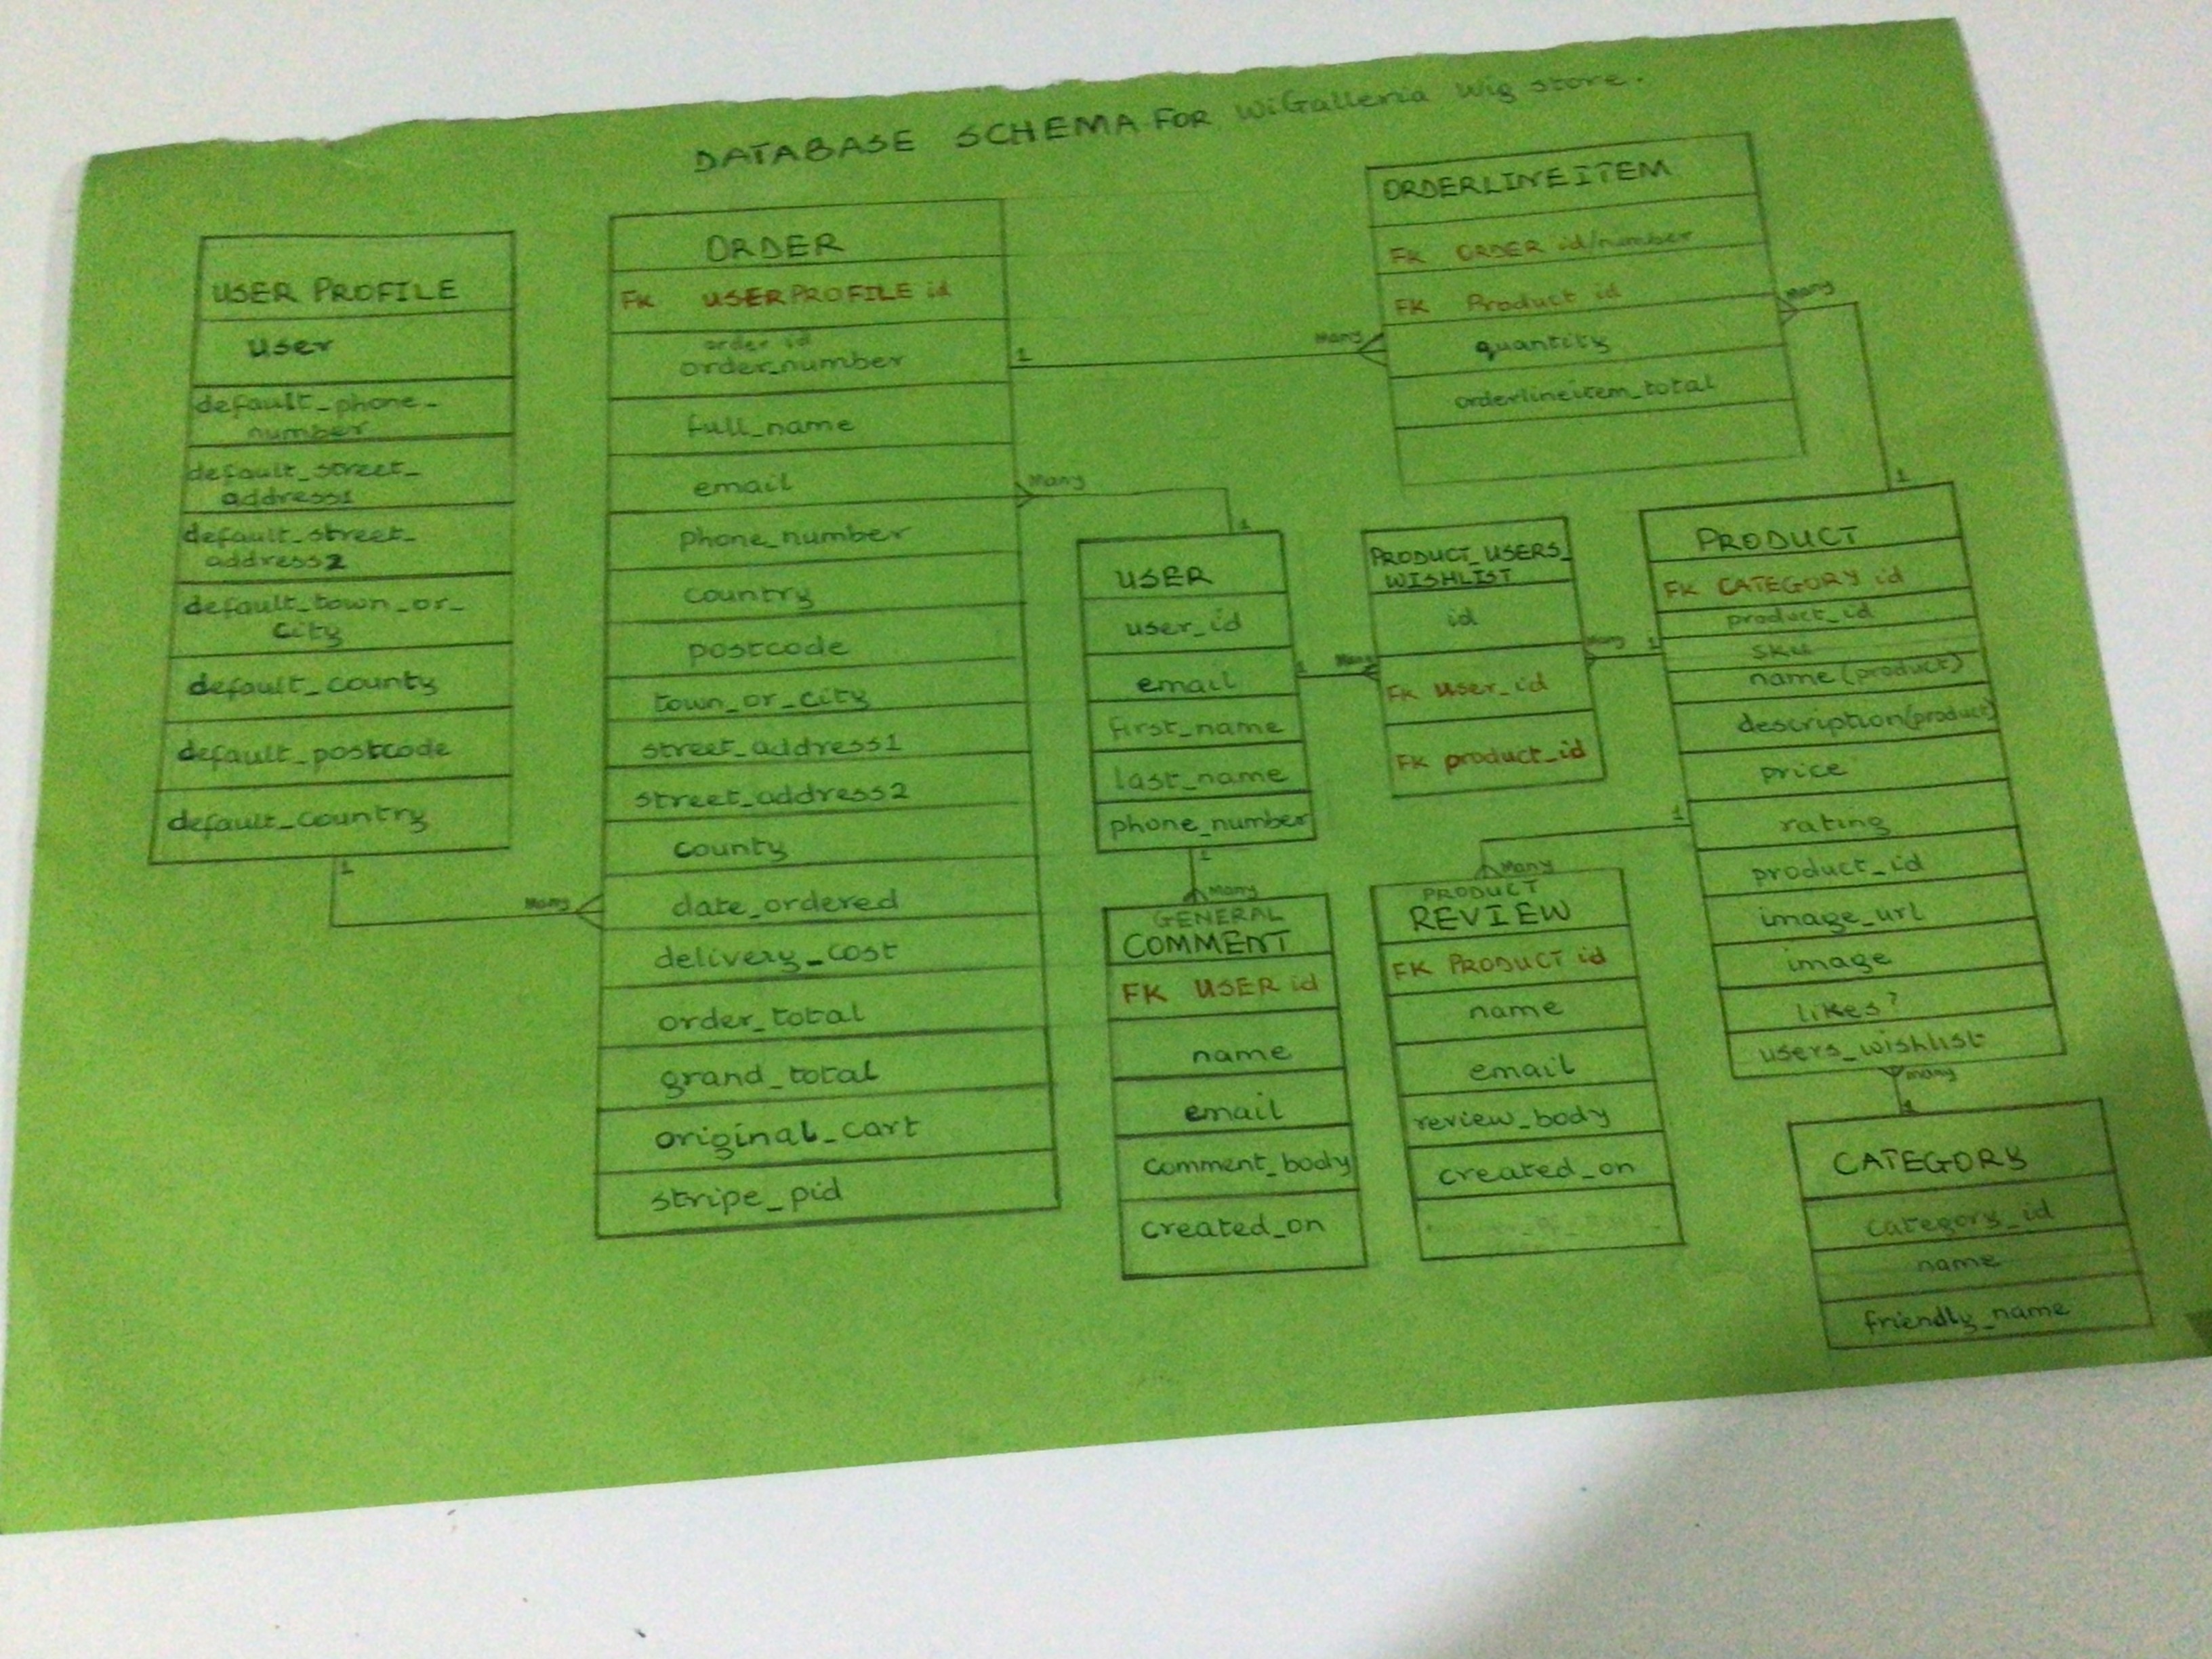 DATABASE SCHEMA FOR WiGalleria Wig store.
USER PROFILE
user
default_phone_
number
default_street_
address1
default_street_
address2
default_town_or_
city
default_county
default_postcode
default_country
1
Many
ORDER
FK USERPROFILE id
order id
order_number
full_name
email
phone_number
country
postcode
town_or_city
street_address1
street_address2
county
date_ordered
delivery_cost
order_total
grand_total
original_cart
stripe_pid
1
Many
Many
1
ORDERLINEITEM
FK ORDER id/number
FK Product id
quantity
orderlineitem_total
Many
1
USER
user_id
email
first_name
last_name
phone_number
1
Many
1
Many
PRODUCT_USERS_
WISHLIST
id
FK user_id
FK product_id
Many
1
PRODUCT
FK CATEGORY id
product_id
sku
name (product)
description(product)
price
rating
product_id
image_url
image
likes?
users_wishlist
1
Many
many
1
GENERAL
COMMENT
FK USER id
name
email
comment_body
created_on
PRODUCT
REVIEW
FK PRODUCT id
name
email
review_body
created_on
CATEGORY
category_id
name
friendly_name